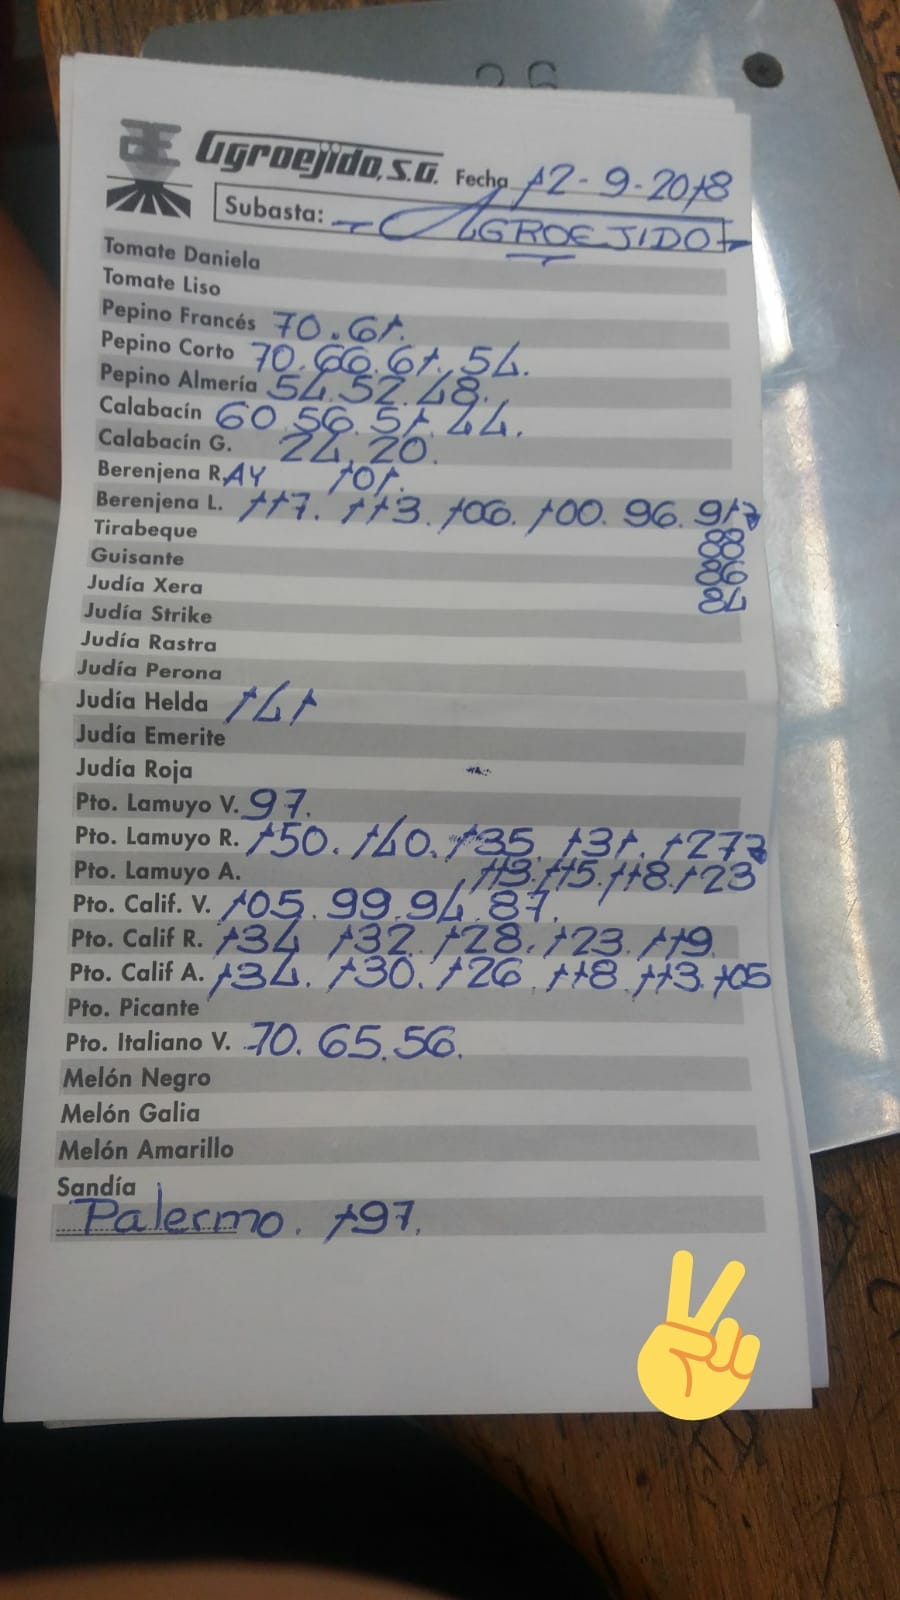 26
Agroejido, S.A. Fecha 12-9-2018
Subasta: AGROEJIDO
Tomate Daniela
Tomate Liso
Pepino Francés 70.61.
Pepino Corto 70.66.61.54.
Pepino Almería 54.52.48.
Calabacín 60.56.51.44.
Calabacín G. 24.20.
Berenjena R.AY 101.
Berenjena L. 117. 113. 106. 100. 96. 91
Tirabeque 88
Guisante 86
Judía Xera 84
Judía Strike
Judía Rastra
Judía Perona
Judía Helda 141
Judía Emerite
Judía Roja
Pto. Lamuyo V. 97.
Pto. Lamuyo R. 150. 140. 135. 131. 127
Pto. Lamuyo A. 113. 115. 118. 123
Pto. Calif. V. 105. 99. 94. 87.
Pto. Calif R. 134 132. 128. 123. 119
Pto. Calif A. 134. 130. 126. 118. 113. 105
Pto. Picante
Pto. Italiano V. 70. 65. 56.
Melón Negro
Melón Galia
Melón Amarillo
Sandía
Palermo. 197.